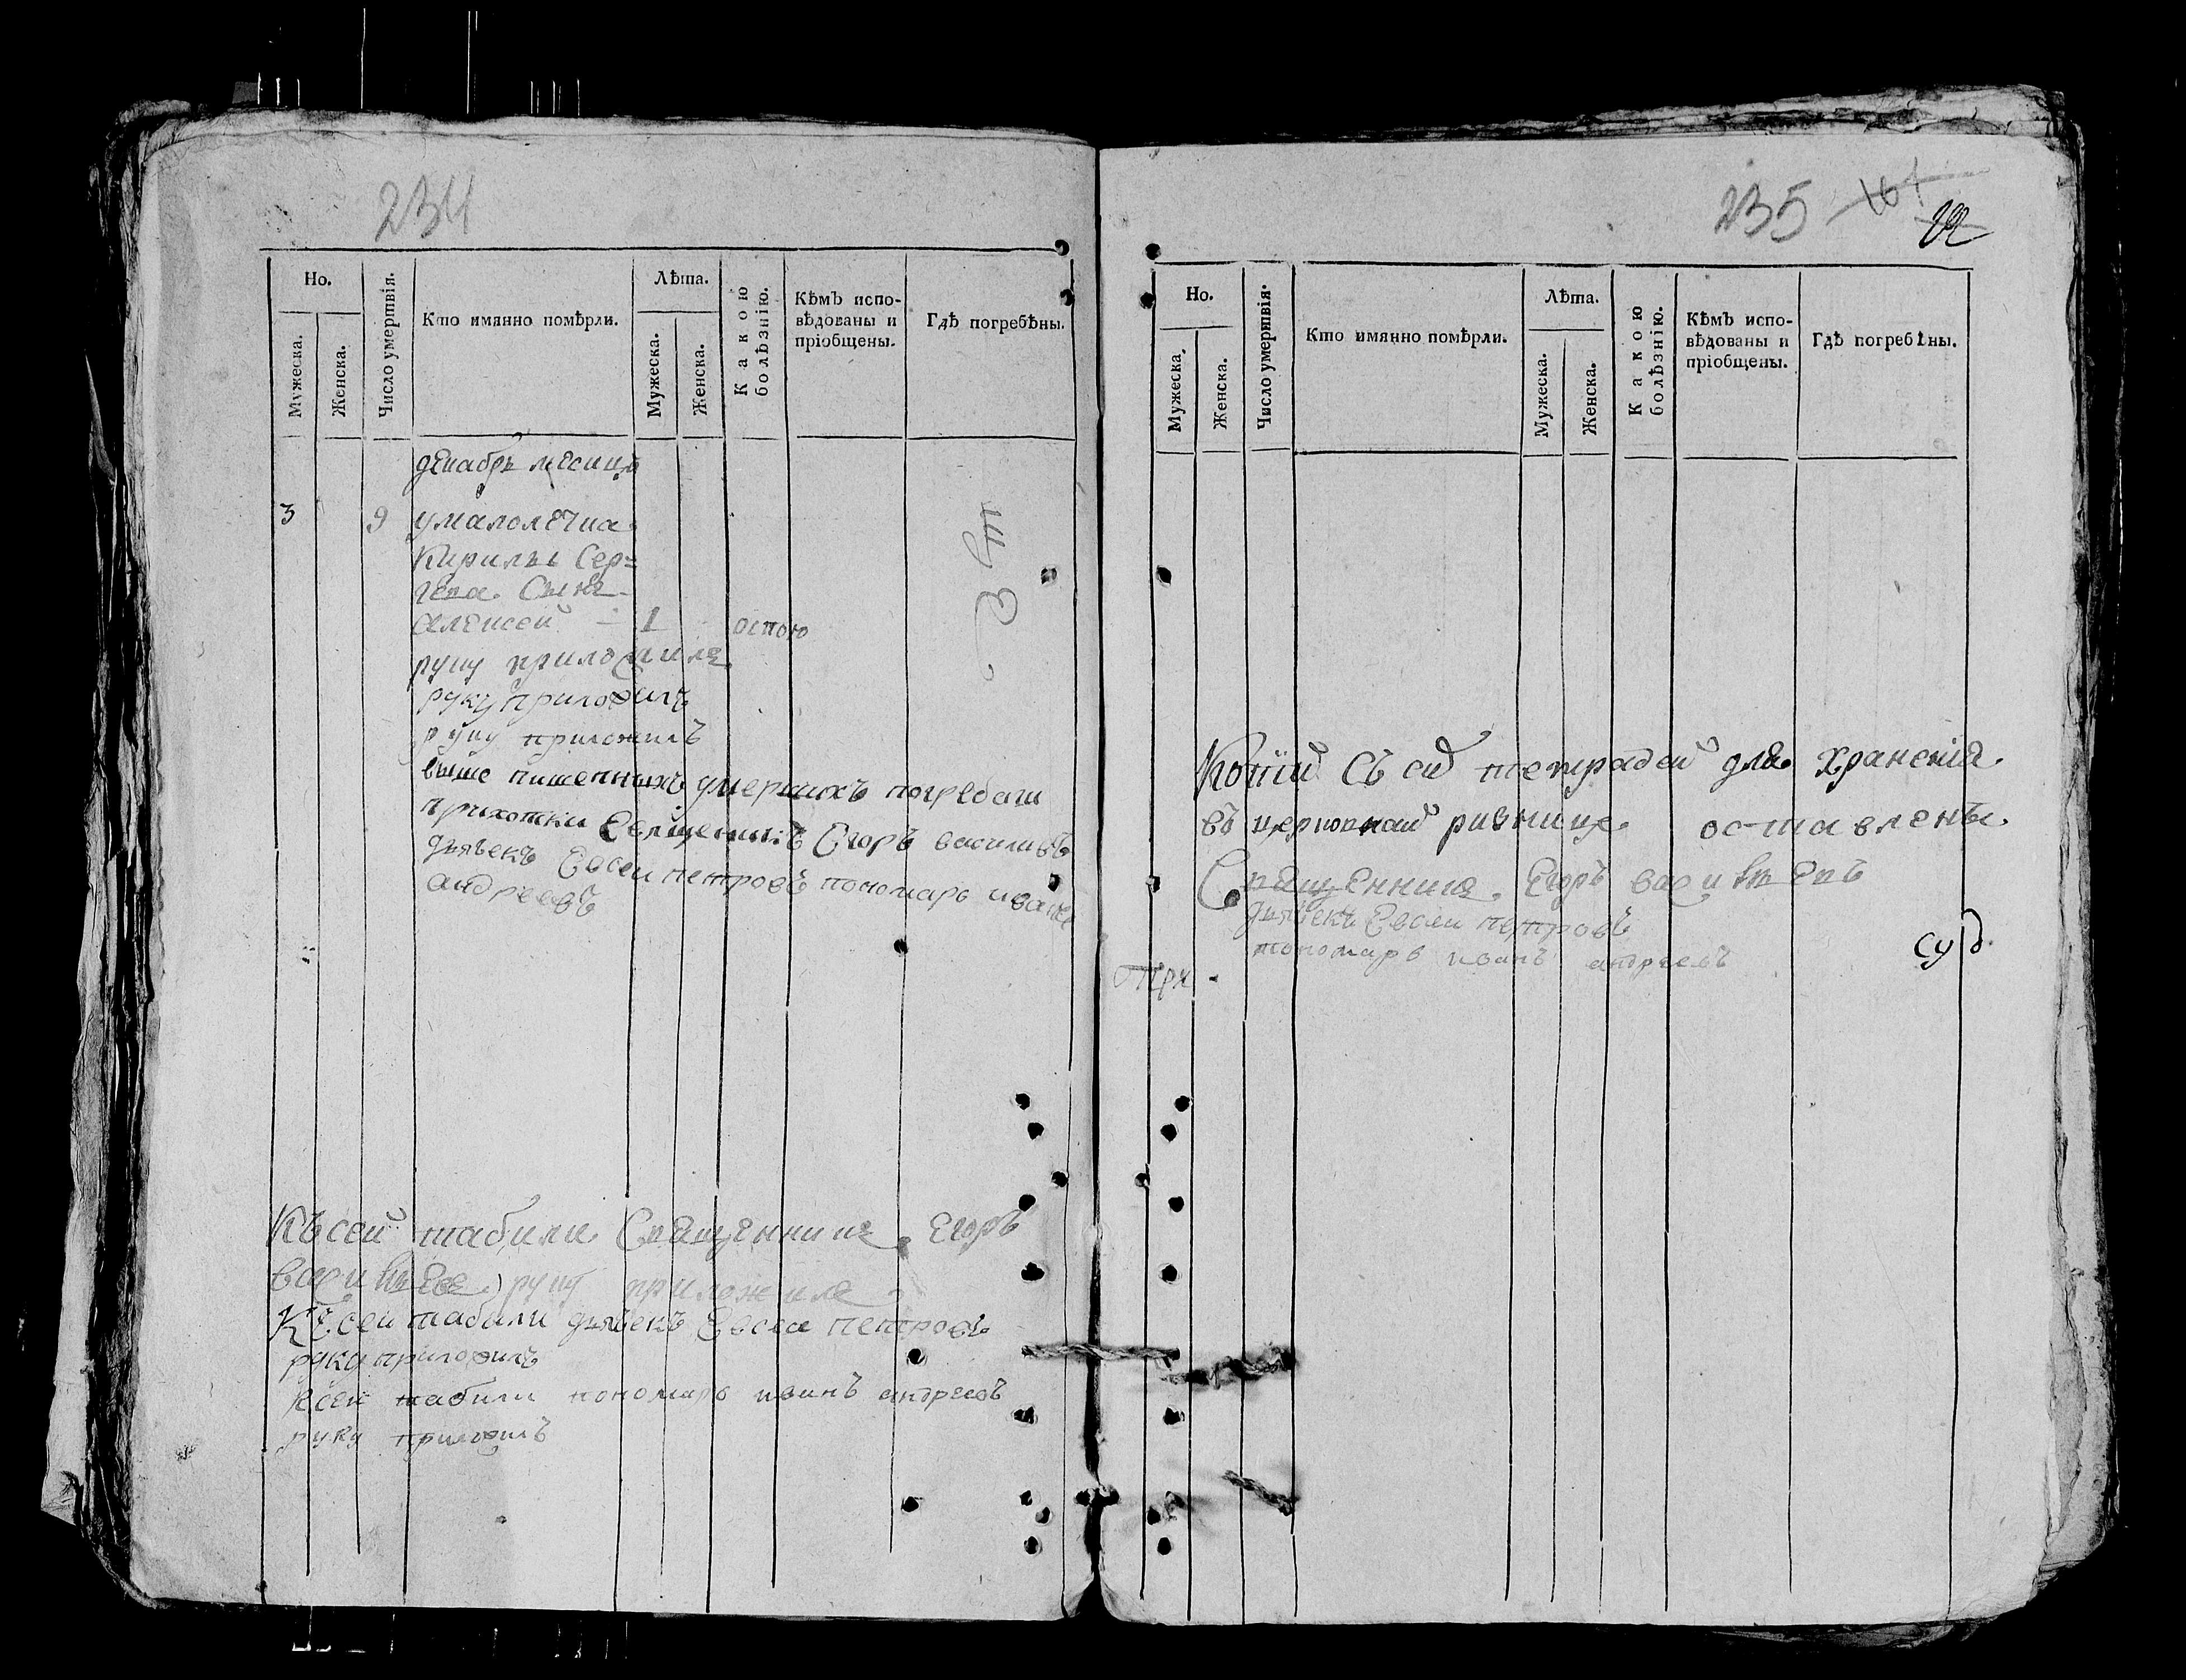 234
Но.
Мужеска.
Женска.
Число умертвія.
Кто имянно помѣрли.
Лѣта.
Мужеска.
Женска.
Какою
болѣзнію.
Кѣмъ испо-
вѣдованы и
пріобщены.
Гдѣ погребѣны.
декабрь месицъ
3 9 умалолечна
Кирилы Сер=
геева Сынъ
алексей - 1 оспою
руку приложилъ
руку приложилъ
руку приложилъ
выше писенныхъ умершихъ погребали
прихотки Священикъ Егоръ васильевъ
дьячекъ Евсеи петровъ пономарь иванъ
андреевъ
Къ сей табили Священникъ Егоръ
васильевъ руку приложилъ
Къ сеи табили дьячекъ Евсеи петровъ
руку приложилъ
Ксеи табили пономарь иванъ андреевъ
руку приложилъ
235
Но.
Мужеска.
Женска.
Число умертвія.
Кто имянно помѣрли.
Лѣта.
Мужеска.
Женска.
Какою
болѣзнію.
Кѣмъ испо-
вѣдованы и
пріобщены.
Гдѣ погребѣны.
Копіи съ сей тетрадеи для хранения
въ церковнай ризнице оставлены
Священникъ Егоръ васильевъ
дьячекъ Евсеи петровъ
пономарь иванъ андреевъ